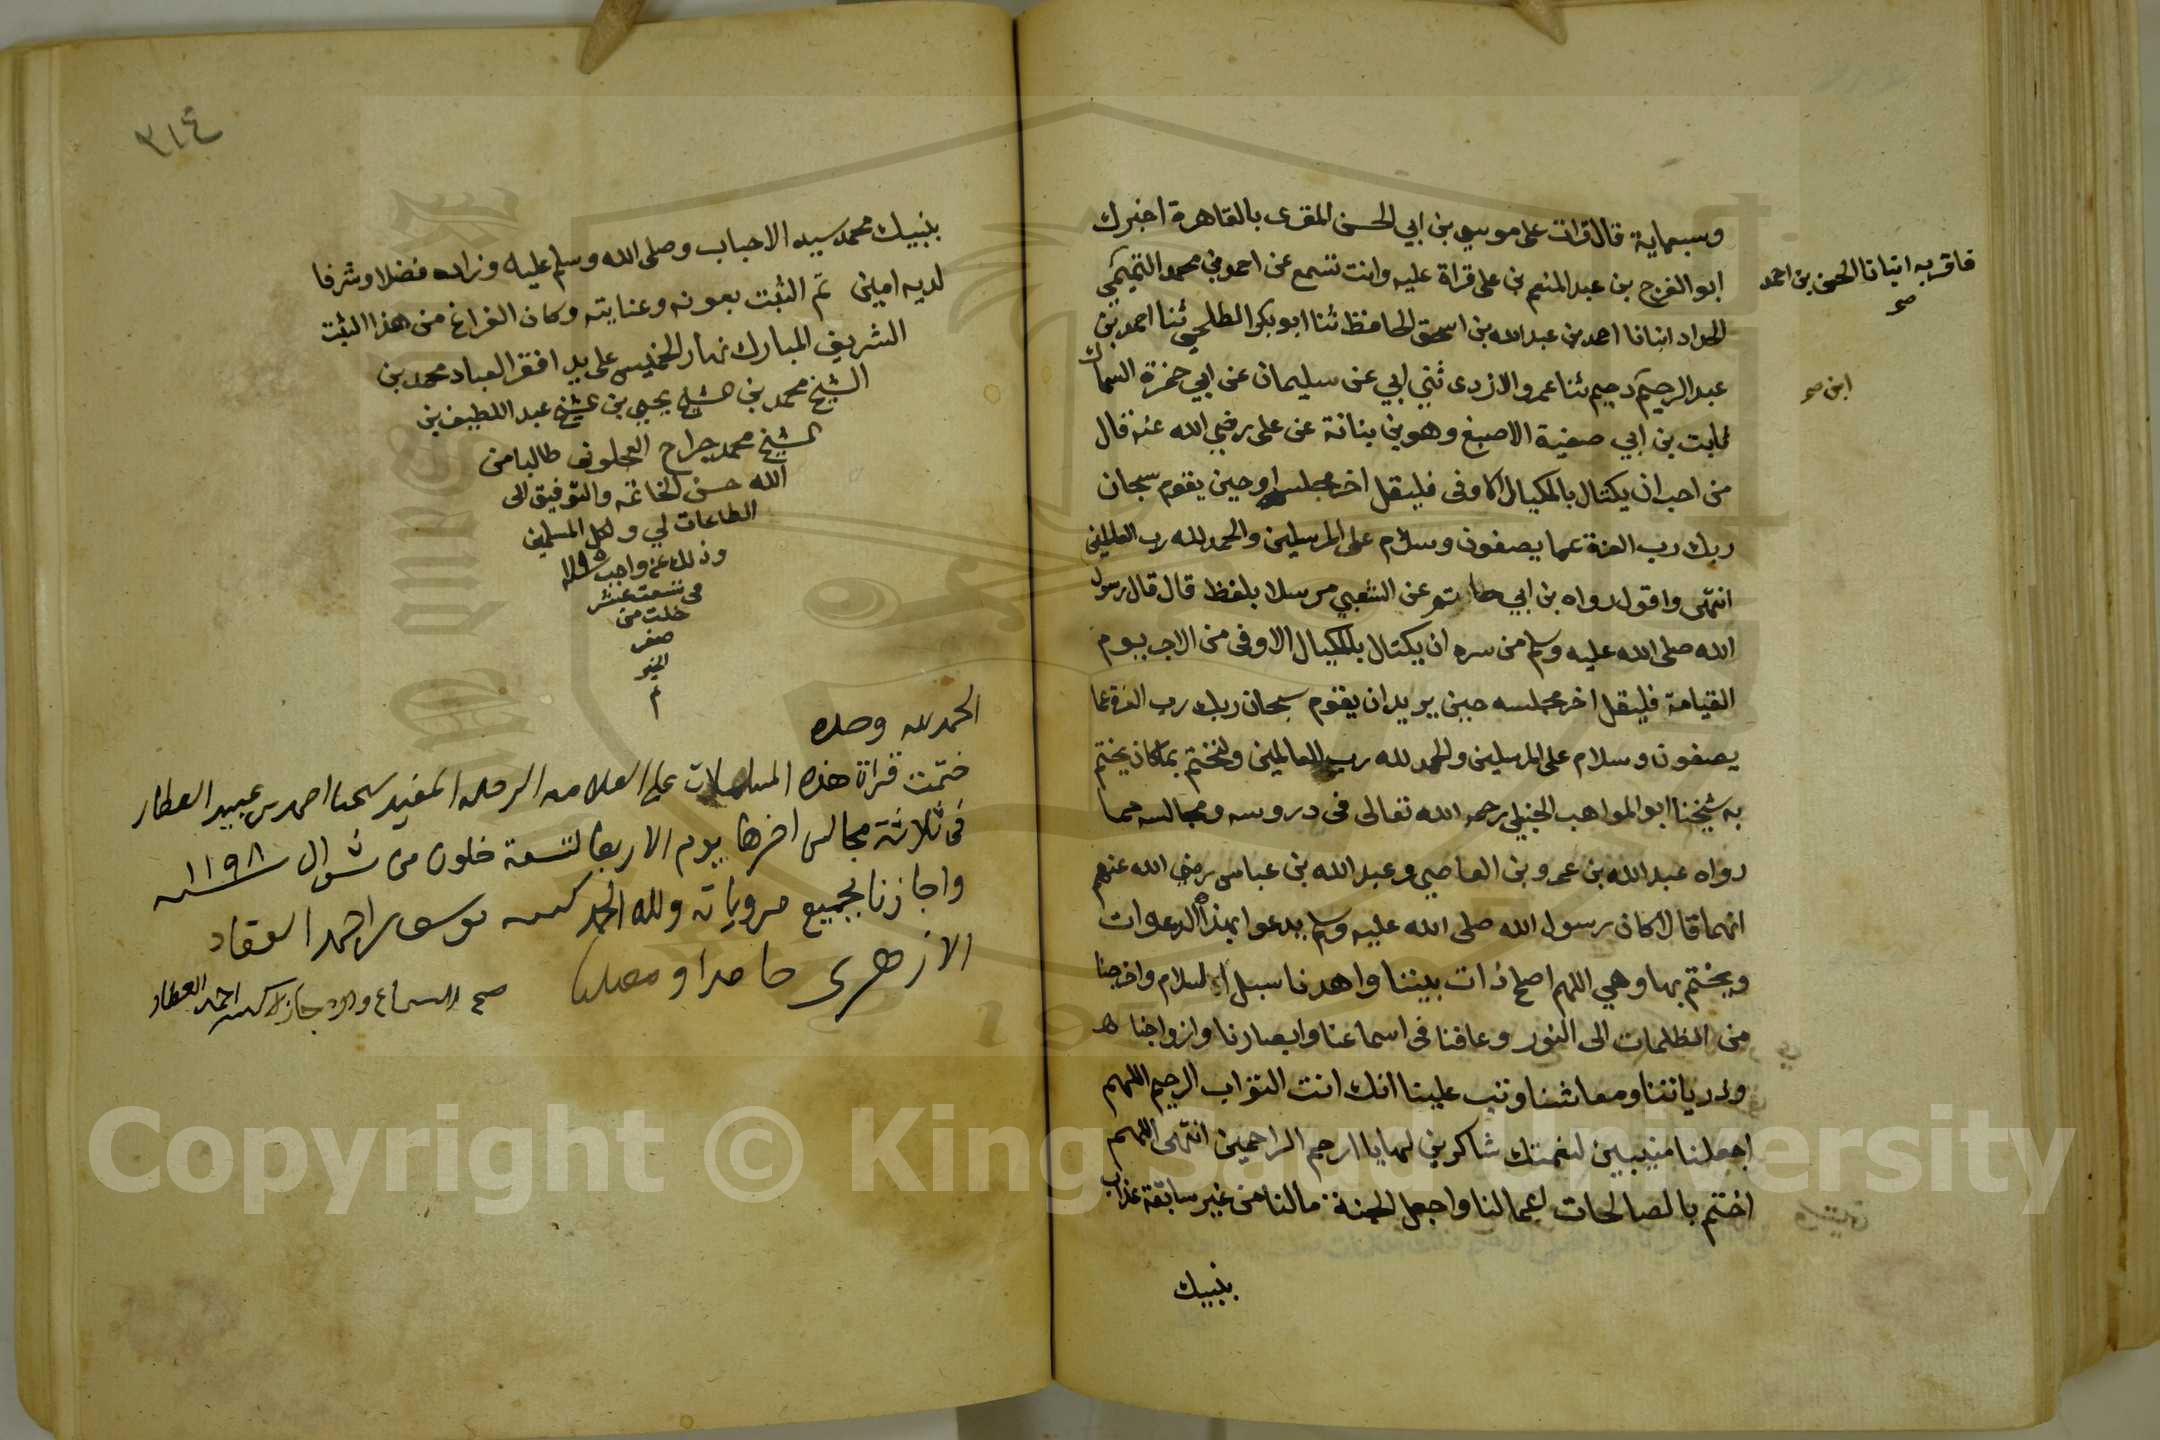 وسبعماية قال قرات على موسى بن ابي الحسن المقرى بالقاهرة اخبرك
ابو الفرج بن عبد المنعم بن على قراة عليه وانت تسمع عن احمد بن محمد التيمى
فاقر به انبانا الحسن بن احمد
صح
الحداد انبانا احمد بن عبد الله بن اسحق الحافظ ثنا ابو بكر الطلحي ثنا احمد بن
عبد الرحيم دحيم ثنا عمرو الازدى ثني ابي عن سليمان عن ابي حمزة السماك
ابن صح
ثابت بن ابي صفية الاصبغ وهو بن بنانة عن على رضي الله عنه قال
من احب ان يكتال بالمكيال الاوفى فليقل اخر مجلسه او حين يقوم سبحان
ربك رب العزة عما يصفون وسلام على المرسلين والحمد لله رب العالمين
انتهى واقول رواه بن ابي حاتم عن الشعبي مرسلا بلفظ قال قال رسول
الله صلى الله عليه وسلم من سره ان يكتال بالمكيال الاوفى من الاجر يوم
القيامة فليقل اخر مجلسه حين يريد ان يقوم سبحان ربك رب العزة عما
يصفون وسلام على المرسلين والحمد لله رب العالمين ولنختم بما كان يختم
به شيخنا ابو المواهب الحنبلي رحمه الله تعالى فى دروسه ومجالسه مما
رواه عبد الله بن عمرو بن العاصي وعبد الله بن عباس رضي الله عنهم
انهما قالا كان رسول الله صلى الله عليه وسلم يدعوا بهذه الدعوات
ويختم بها وهي اللهم اصلح ذات بيننا واهدنا سبل السلام واخرجنا
من الظلمات الى النور وعافنا فى اسماعنا وابصارنا وازواجنا
وذرياتنا ومعاشنا وتب علينا انك انت التواب الرحيم اللهم
اجعلنا منيبين لنعمتك شاكرين لها يا ارحم الراحمين انتهى اللهم
اختم بالصالحات اعمالنا واجعل الجنة مالنا من غير سابقة عذاب
بنبيك
٣١٤
بنبيك محمد سيد الاحباب وصلى الله وسلم عليه وزاده فضلا وشرفا
لديه امين تم الثبت بعونه وعنايته وكان الفراغ من هذا الثبت
الشريف المبارك نهار الخميس على يد افقر العباد محمد بن
الشيخ محمد بن الشيخ يحيى بن الشيخ عبد اللطيف بن
الشيخ محمد جراح العجلوني طالبا من
الله حسن الخاتمه والتوفيق الى
الطاعات لي ولكل المسلمين
وذلك
فى تسعت عشر
خلت من
صفر
الخير
م
الحمد لله وحده
ختمت قراة هذه المسلسلات على العلامه الرحله المفيد شيخنا احمد بن عبيد العطار
فى ثلاثة مجالس اخرها يوم الاربعا لتسعة خلون من شوال سنه ١١٩٨
واجازنا بجميع مروياته ولله الحمد كتبه يوسف بن احمد العقاد
الازهرى حامدا ومصليا
صح السماع والاجازة كتبه احمد العطار
Copyright © King Saud University
1957